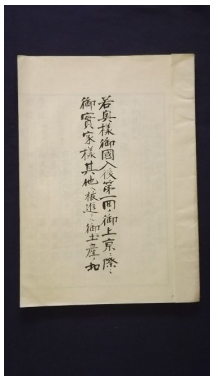 若奥様御國入後第一回ノ御上京ノ際ノ
御實家様其他ヘ被進ノ御土産ノ扣